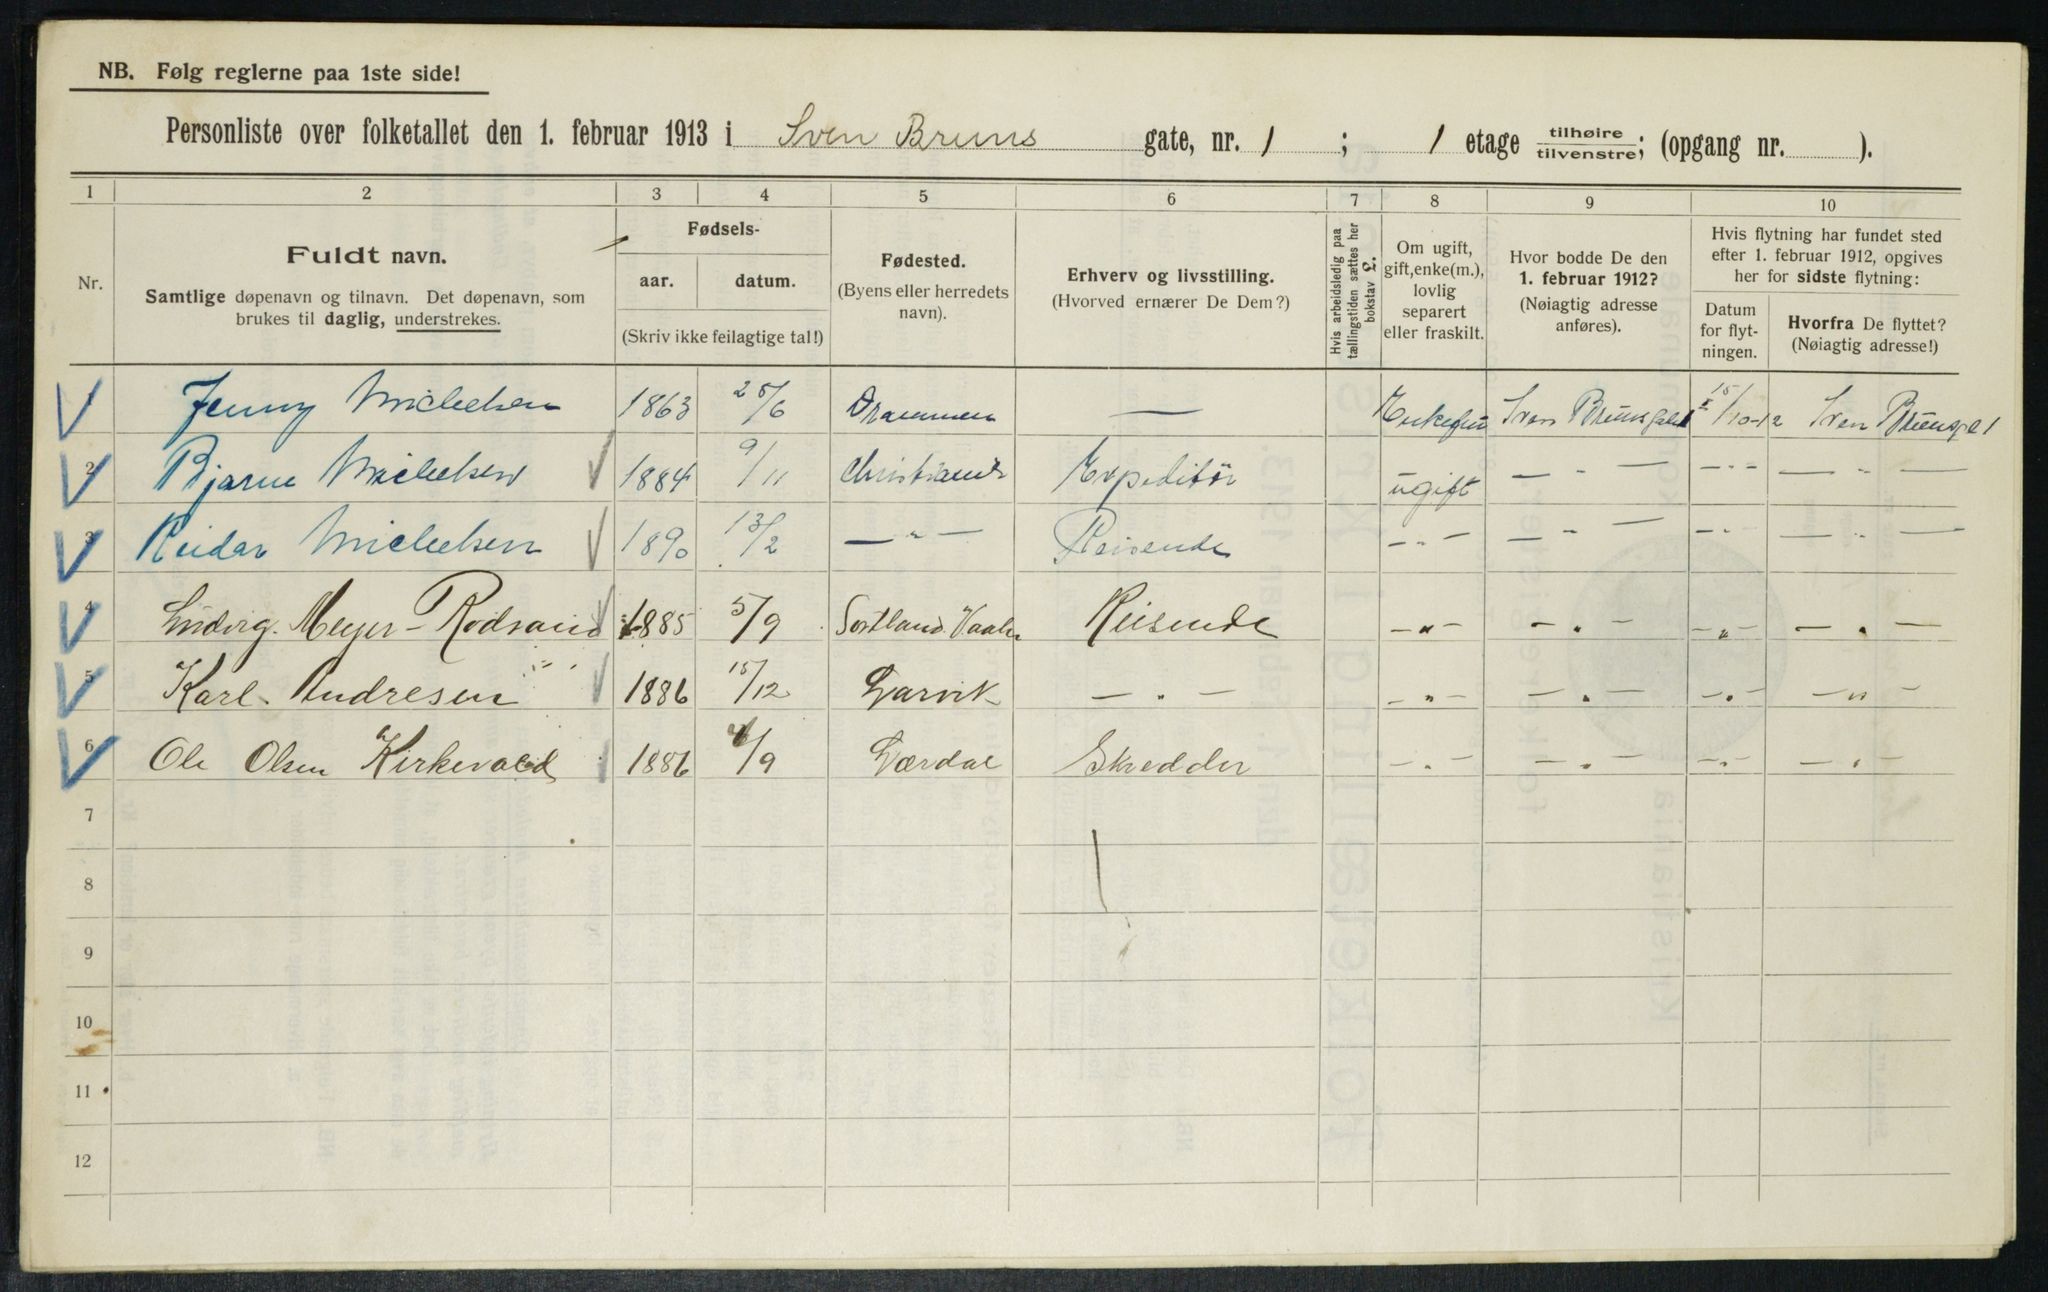 NB. Følg reglerne paa 1ste side!
Personliste over folketallet den 1. februar 1913 i Sven Bruns gate, nr. 1 ; 1 etage tilhøire tilvenstre; (opgang nr. ).
1 2 3 4 5 6 7 8 9 10
Nr.
Fuldt navn.
Samtlige døpenavn og tilnavn. Det døpenavn, som
brukes til daglig, understrekes.
Fødsels-
aar. datum.
(Skriv ikke feilagtige tal!)
Fødested.
(Byens eller herredets
navn).
Erhverv og livsstilling.
(Hvorved ernærer De Dem?)
Hvis arbeidsledig paa
tællingstiden sættes her
bokstav £.
Om ugift,
gift, enke(m.),
lovlig
separert
eller fraskilt.
Hvor bodde De den
1. februar 1912?
(Nøiagtig adresse
anføres).
Hvis flytning har fundet sted
efter 1. februar 1912, opgives
her for sidste flytning:
Datum
for flyt-
ningen.
Hvorfra De flyttet?
(Nøiagtig adresse!)
1 Jenny Michelsen 1863 25/6 Drammen — Enkefru Sven Brunsgate 1 15/10-12 Sven Brunsg 1
2 Bjarne Michelsen 1884 9/11 Christiania Expeditör ugift — " — — " — — " —
3 Reidar Michelsen 1890 13/2 — " — Reisende — " — — " — — " — — " —
4 Ludvig. Meyer-Rodsand 1885 5/9 Sortland Reisende — " — — " — — " — — " —
5 Karl Andresen 1886 15/12 Larvik — " — — " — — " — — " — — " —
6 Ole Olsen Kirkevold 1886 /9 Lærdal Skredder — " — — " — — " — — " —
7
8
9
10
11
12